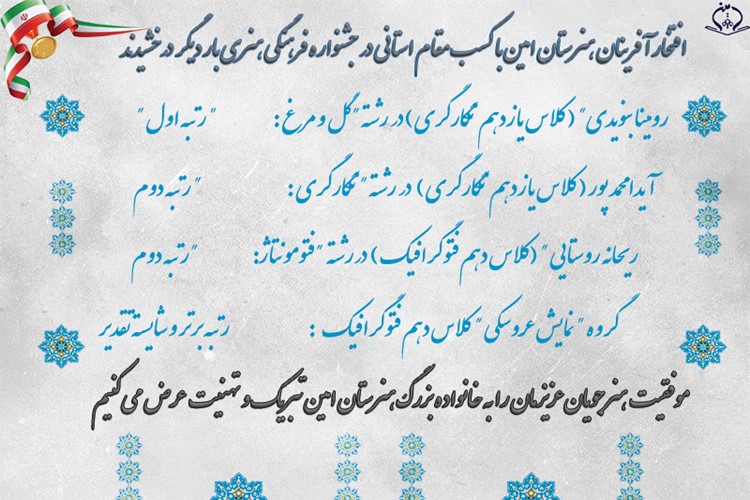 افتخار آفرینان هنرستان امین با کسب مقام استانی در جشنواره فرهنگی هنری بار دیگر درخشیدند
رومینا بنویدی" (کلاس یازدهم نگارگری) در رشته "گل و مرغ: "رتبه اول"
آیدا محمدپور (کلاس یازدهم نگارگری) در رشته "نگارگری: "رتبه دوم
ریحانه روستایی" (کلاس دهم فتوگرافیک) در رشته "فتومونتاژ: "رتبه دوم
گروه "نمایش عروسکی" کلاس دهم فتوگرافیک : رتبه برتر و شایسته تقدیر
موفقیت هنرجویان عزیزمان را به خانواده بزرگ هنرستان امین تبریک و تهنیت عرض می کنیم